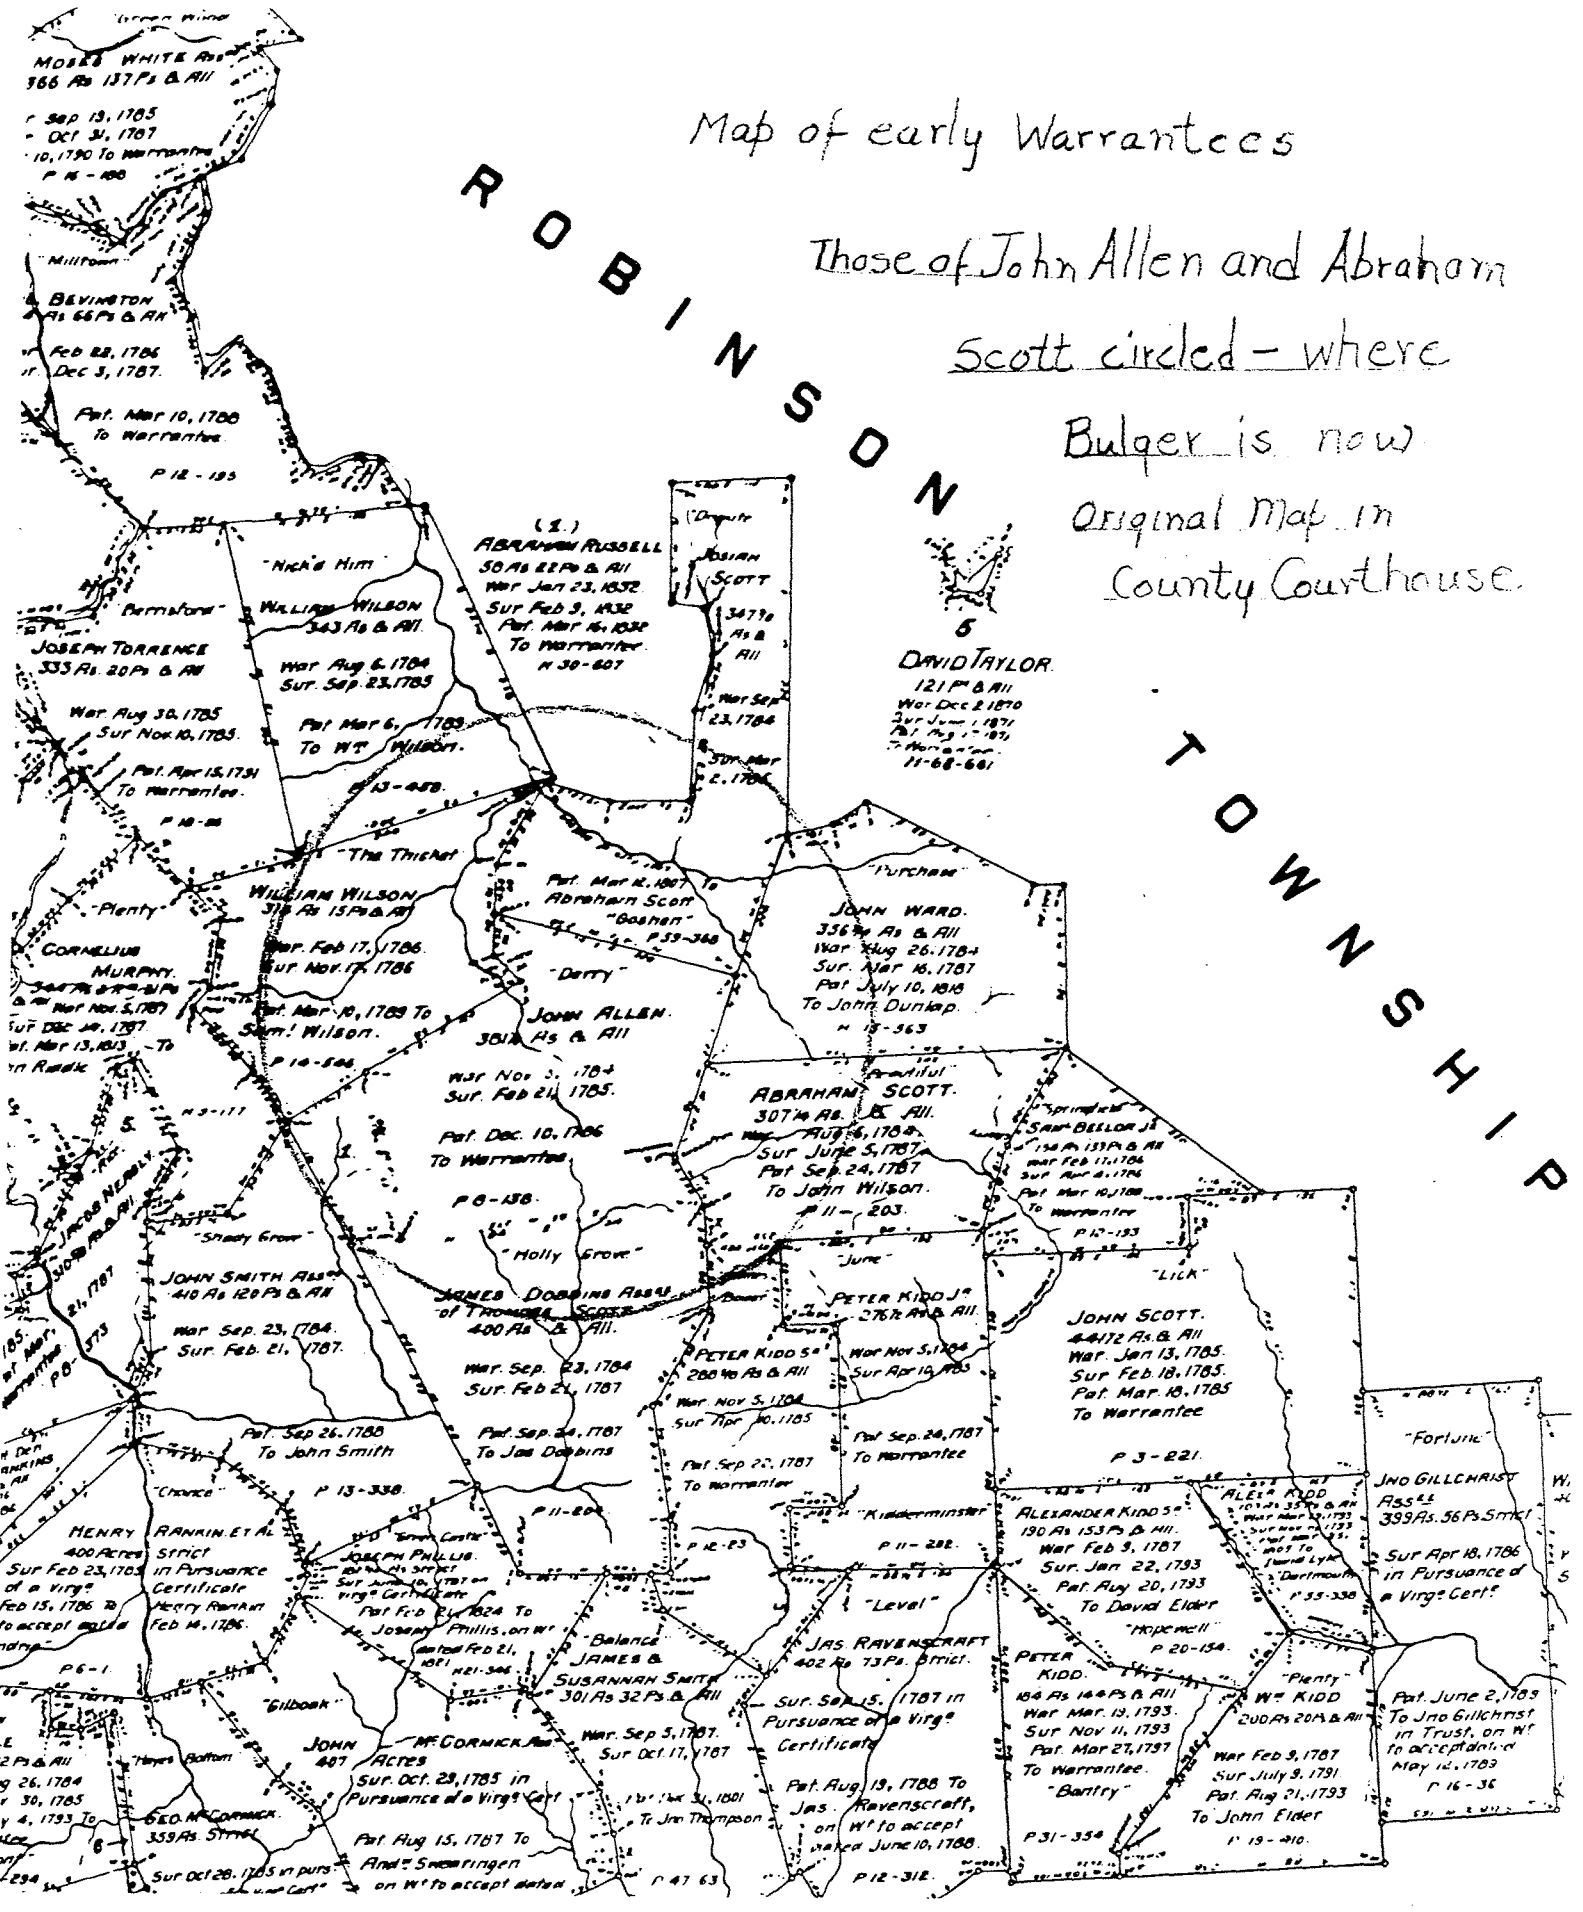 Map of early Warrantees
Those of John Allen and Abraham
Scott circled – where
Bulger is now
Original Map in
County Courthouse.
ROBINSON TOWNSHIP
MOSES WHITE Ass
366 As 137 Ps & All
Sep 13, 1785
Oct 31, 1787
10, 1790 To Warrantee
P 16 - 188
"Milltown"
BEVINGTON
As 66 Ps & All
Feb 22, 1786
Dec 3, 1787.
Pat. Mar 10, 1788
To Warrantee.
P 12 - 195
JOSEPH TORRENCE
333 As. 20 Ps & All
War Aug 30, 1785
Sur Nov. 10, 1785.
Pat. Apr 15, 1791
To Warrantee.
"Nick's Him"
WILLIAM WILSON
343 As & All.
War Aug 6, 1784
Sur. Sep. 23, 1785
Pat Mar 6, 1789
To Wm Wilson.
P 13 - 458.
(1.)
ABRAHAM RUSSELL
50 As 22 Ps & All
War Jan 23, 1832
Sur Feb 9, 1832
Pat. Mar 16, 1832
To Warrantee.
H 30 - 607
"Dispute
JOSIAH
SCOTT
As &
All
War Sep
23, 1784
Sur Mar
5
DAVID TAYLOR.
121 Ps & All
War Dec 2 1870
Sur June 1 1871
H-68-661
"The Thicket"
WILLIAM WILSON
As 15 Ps & All
War. Feb 17, 1786.
Sur. Nov. 17, 1786
Pat. Mar. 10, 1789 To
Saml. Wilson.
P 14 - 546
Pat. Mar 12, 1807 To
Abraham Scott
"Goshen"
P 59-368
"Derry"
JOHN ALLEN.
As & All
War Nov 1784
Sur. Feb 21, 1785.
Pat. Dec. 10, 1786
To Warrantee.
P 8 - 138.
"Purchase"
JOHN WARD.
As & All
War Aug 26, 1784
Sur. Mar 16, 1787
Pat July 10, 1818
To John Dunlap.
H 15 - 563
"Beautiful"
ABRAHAM SCOTT.
307¼ As. & All.
War Aug 6, 1784
Sur June 5, 1787
Pat Sep. 24, 1787
To John Wilson.
P 11 - 203.
"Springfield"
War Feb 17, 1786
To Warrantee
P 12 - 193
"Plenty"
CORNELIUS
MURPHY.
War Nov. 5, 1787
H 3 - 177
5.
JACOB NEARLY.
21, 1787
"Shady Grove"
JOHN SMITH Assee
410 As 120 Ps & All
War Sep. 23, 1784.
Sur. Feb. 21, 1787.
Pat. Sep 26, 1788
To John Smith
P 13 - 338.
"Holly Grove"
JAMES DOBBINS Assee
of THOMAS SCOTT
400 As & All.
War. Sep. 23, 1784
Sur. Feb 21, 1787
Pat. Sep. 24, 1787
To Jas Dobbins
"June"
PETER KIDD Jr
276½ As & All
War Nov 5, 1784
Sur Apr 10, 1785
Pat Sep. 24, 1787
To Warrantee
"Kidderminster"
P 11 - 202.
PETER KIDD Sr
As & All
War Nov 5, 1784
Sur Apr 10, 1785
Pat Sep 22, 1787
To Warrantee
P 12 - 23
"LICK"
JOHN SCOTT.
441½ As. & All
War. Jan 13, 1785.
Sur Feb. 18, 1785.
Pat. Mar. 18, 1785
To Warrantee
P 3 - 221.
"Fortune"
JNO GILLCHRIST
Assee
399 As. 56 Ps. Strict
Sur Apr 18, 1786
in Pursuance of
a Virga Certe
Pat. June 2, 1789
To Jno Gillchrist
in Trust, on Wt
to accept dated
May 12, 1789
P 16 - 36
"Chance"
HENRY RANKIN. ET AL
400 Acres Strict
Sur Feb 23, 1785 in Pursuance
of a Virga Certificate
Feb 15, 1786 To Henry Rankin
to accept dated Feb 14, 1786.
P 6 - 1.
"Green Castle"
JOSEPH PHILLIS.
Virga Certificate
Pat Feb 21, 1824 To
Joseph Phillis, on Wt
dated Feb 21,
1821
H 21 - 346
"Balance"
JAMES &
SUSANNAH SMITH
301 As 32 Ps & All
War. Sep 5, 1787.
Sur Oct. 17, 1787
To Jno Thompson
P 47 63
"Level"
JAS. RAVENSCRAFT
402 As 73 Ps. Strict.
Sur. Sep. 15. 1787 in
Pursuance of a Virga
Certificate
Pat. Aug. 19, 1788 To
Jas. Ravenscraft,
on Wt to accept
dated June 10, 1788.
P 12 - 312.
ALEXANDER KIDD Sr
190 As 153 Ps & All.
War Feb 9, 1787
Sur. Jan 22, 1793
Pat. Aug 20, 1793
To David Elder
"Hopewell"
P 20 - 154.
ALEXr KIDD
"Dartmouth"
P 55 - 338
PETER
KIDD.
184 As 144 Ps & All
War Mar. 19, 1793.
Sur Nov 11, 1793
Pat. Mar 27, 1797
To Warrantee.
"Bantry"
P 31 - 354
"Plenty"
Wm KIDD
200 As 20 Ps & All
War Feb 9, 1787
Sur July 9. 1791.
Pat. Aug 21, 1793
To John Elder
P 19 - 410.
"Gilboah"
JOHN McCORMICK Ass
407 Acres
Sur. Oct. 29, 1785 in
Pursuance of a Virga Cert
Pat. Aug 15, 1787 To
Andw Swearingen
on Wt to accept dated
"Hayes Bottom
GEO. McCORMICK.
359 As. Strict
Sur Oct 28. 1785 in purs